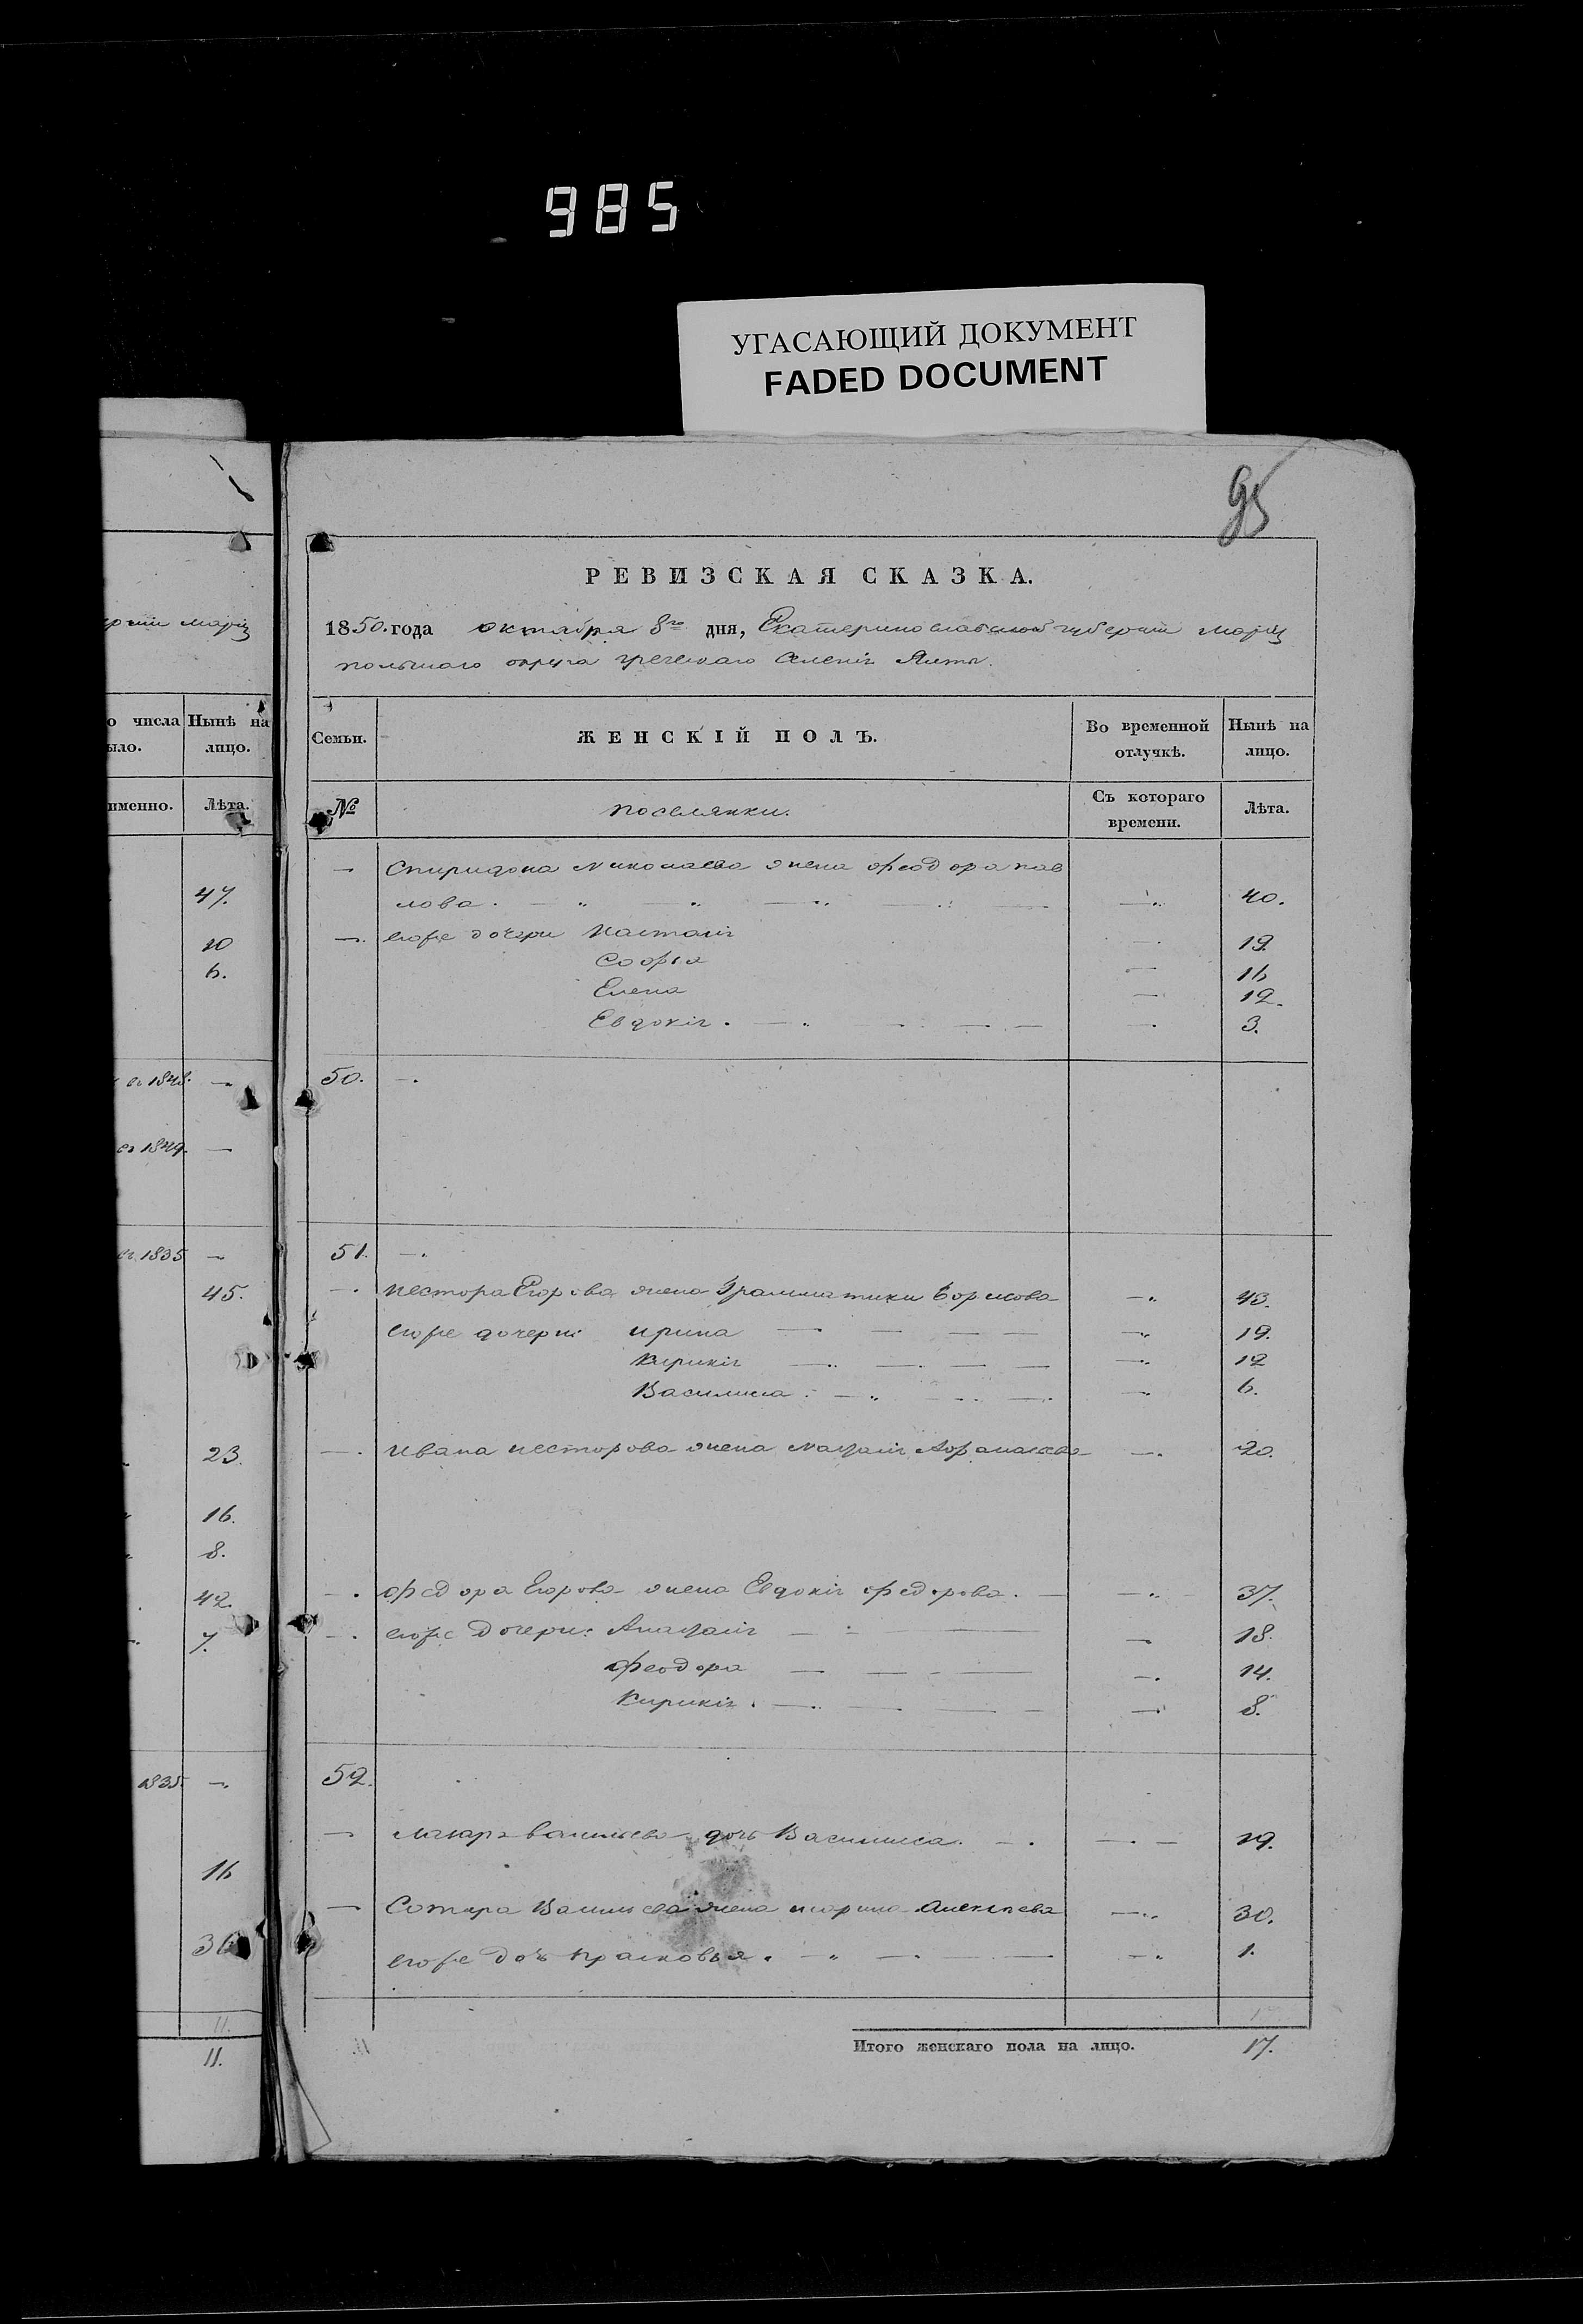 985
УГАСАЮЩИЙ ДОКУМЕНТ
FADED DOCUMENT
95
рніи маріу
о числа Нынѣ на
ыло. лицо.
именно. Лѣта.
47.
10
6.
1848. —
1849. —
1835 —
45.
23.
16.
8.
42.
7.
1835 —
16
36
11.
11.
РЕВИЗСКАЯ СКАЗКА.
1850. года октября 8го дня, Екатеринославской губерніи маріу
польскаго округа греческаго селенія Ялты.
Семьи. ЖЕНСКІЙ ПОЛЪ. Во временной отлучкѣ. Нынѣ на лицо.
№ поселянки. Съ котораго времени. Лѣта.
— Спиридона Николаева жена феодора пав
лова. — 40.
—. егоже дочери Настасія 19.
Софья 16
Елена 12.
Евдокія. — 3.
50. —.
51. —.
—. Нестора Егорова жена Грамматики Борисова —. 43.
егоже дочери: ирина — 19.
Кирикія — 12
Василиса. — 6.
—. Ивана несторова жена Афанасьева —. 20.
—. федора Егорова жена Евдокія федорова. — 37.
—. егоже дочери: — 18.
феодора — 14.
Кирикія. — 8.
52.
— Васильева дочь Василиса. — 19.
— Васильева жена Алексеева — 30.
егоже дочь Прасковья. — 1.
Итого женскаго пола на лицо. 17.